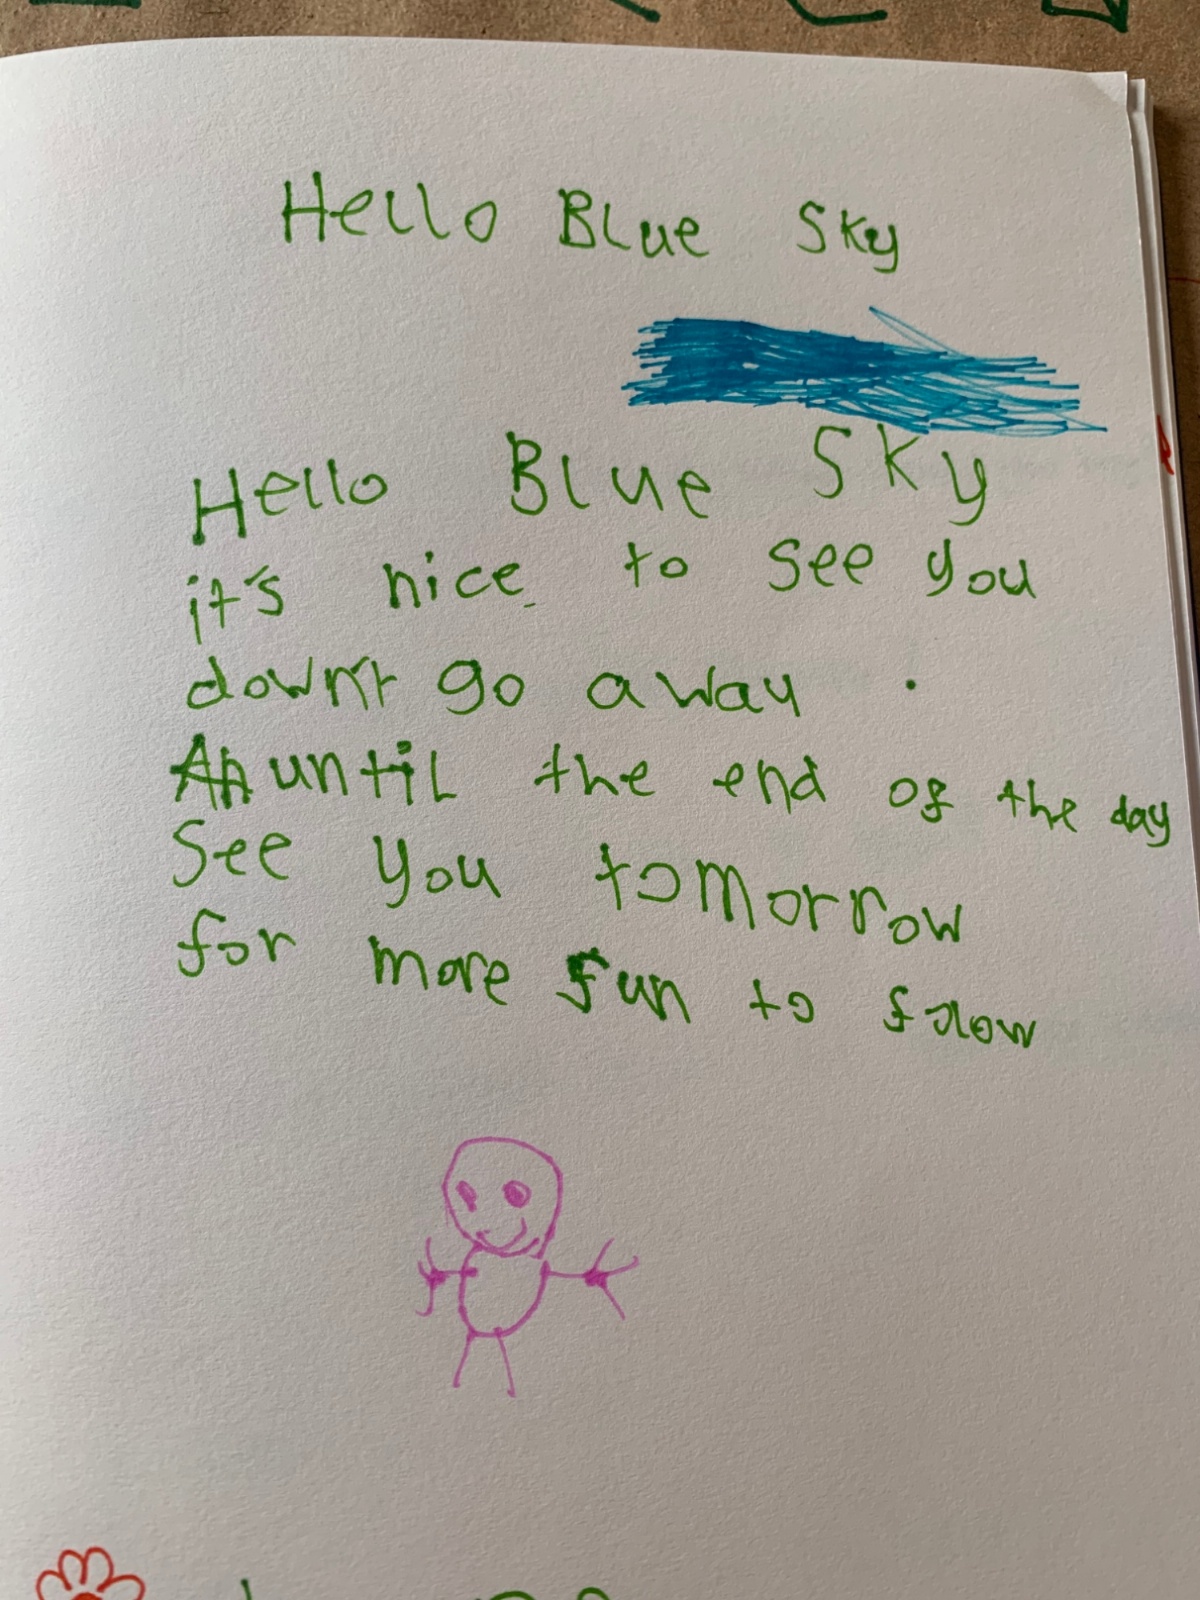 Hello Blue Sky
Hello Blue Sky
it's nice to see you
down't go away
until the end of the day
See you tomorrow
for more fun to